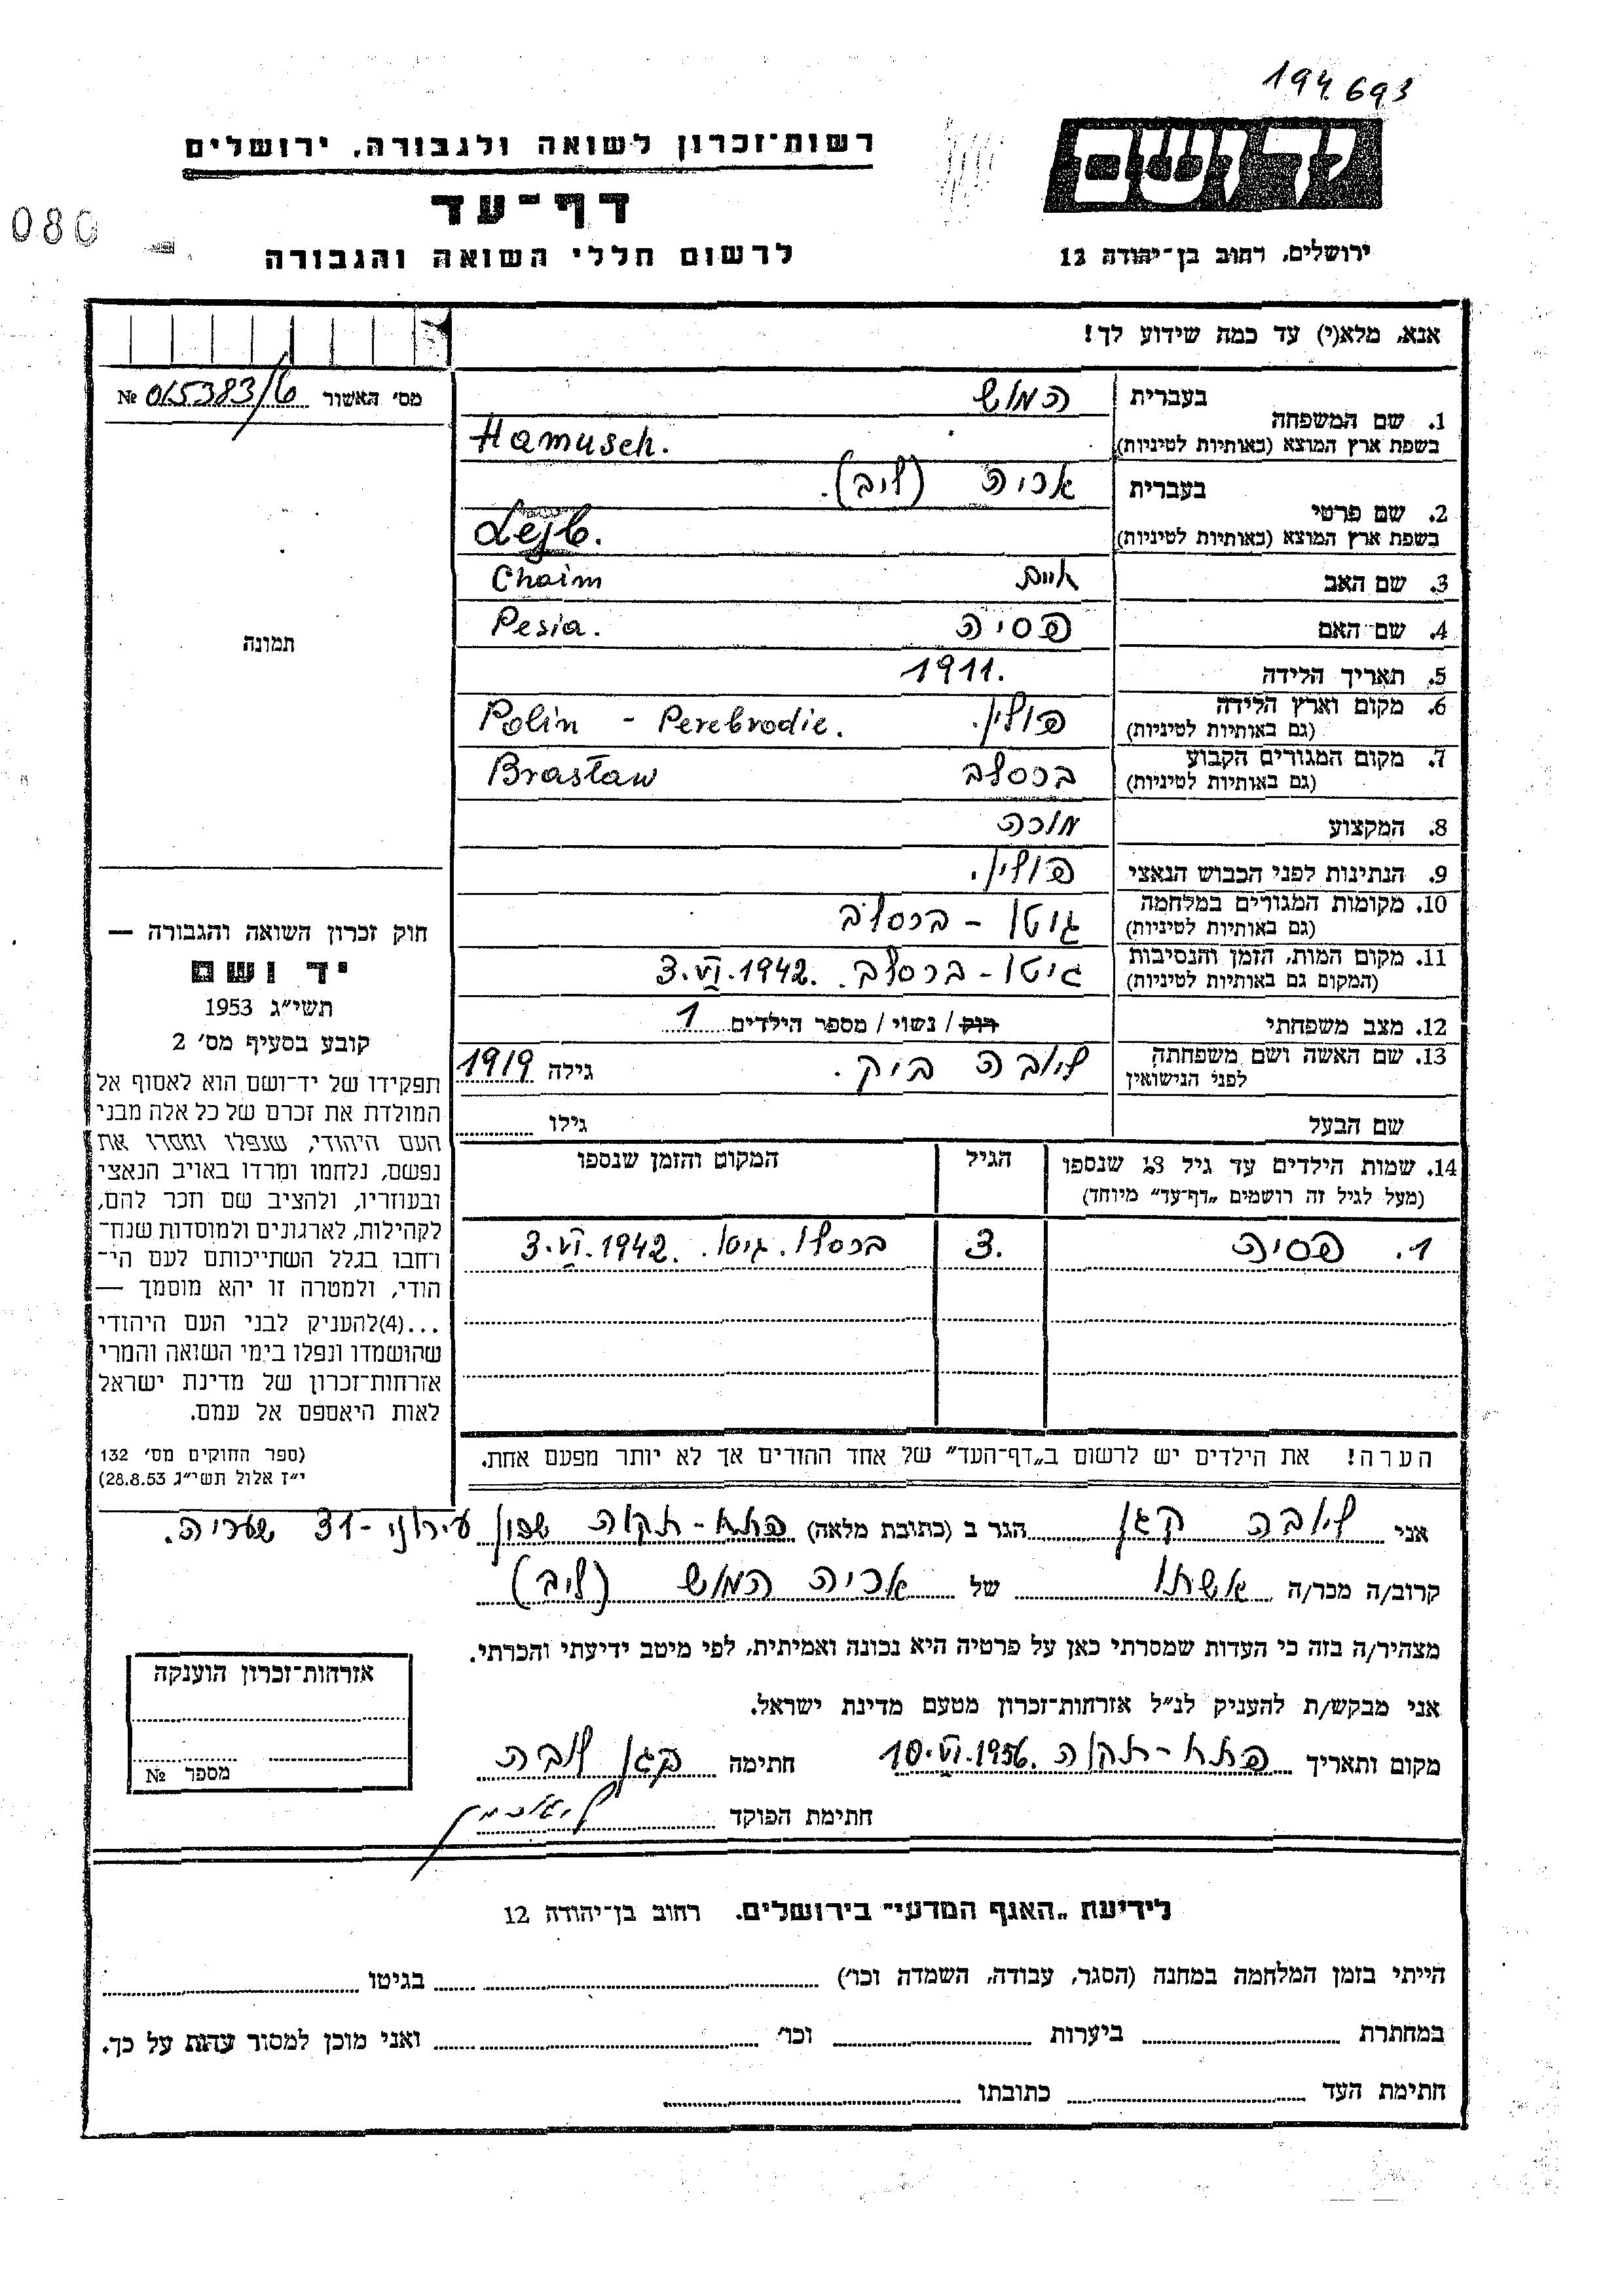 194.693
יד ושם
רשות־זכרון לשואה ולגבורה, ירושלים
דף־עד
080
ירושלים, רחוב בן־יהודה 12
לרשום חללי השואה והגבורה
אנא, מלא(י) עד כמה שידוע לך!
מס׳ האשור № 015383/6
1. שם המשפחה
בעברית המוש
בשפת ארץ המוצא (באותיות לטיניות) Hamusch.
2. שם פרטי
בעברית אריה (ליב).
בשפת ארץ המוצא (באותיות לטיניות) Lejb.
3. שם האב Chaim
4. שם האם פסיה Pesia.
5. תאריך הלידה 1911.
6. מקום וארץ הלידה פולין. Polin - Perebrodie.
(גם באותיות לטיניות)
7. מקום המגורים הקבוע ברסלב Brasław
(גם באותיות לטיניות)
8. המקצוע מורה
9. הנתינות לפני הכבוש הנאצי פולין.
10. מקומות המגורים במלחמה גיטו - ברסלב
(גם באותיות לטיניות)
11. מקום המות, הזמן והנסיבות גיטו - ברסלב. 3.VI.1942.
(המקום גם באותיות לטיניות)
12. מצב משפחתי רוק / נשוי / מספר הילדים 1
13. שם האשה ושם משפחתה ליובה ביק. גילה 1919
לפני הנישואין
שם הבעל גילו
14. שמות הילדים עד גיל 18 שנספו הגיל המקום והזמן שנספו
(מעל לגיל זה רושמים „דף־עד״ מיוחד)
1. פסיה 3. ברסלו. גיטו. 3.VI.1942.
הערה! את הילדים יש לרשום ב„דף־העד״ של אחד ההורים אך לא יותר מפעם אחת.
תמונה
חוק זכרון השואה והגבורה —
יד ושם
תשי״ג 1953
קובע בסעיף מס׳ 2
תפקידו של יד־ושם הוא לאסוף אל
המולדת את זכרם של כל אלה מבני
העם היהודי, שנפלו ומסרו את
נפשם, נלחמו ומרדו באויב הנאצי
ובעוזריו, ולהציב שם וזכר להם,
לקהילות, לארגונים ולמוסדות שנח־
רבו בגלל השתייכותם לעם הי־
הודי, ולמטרה זו יהא מוסמך —
...(4)להעניק לבני העם היהודי
שהושמדו ונפלו בימי השואה והמרי
אזרחות־זכרון של מדינת ישראל
לאות היאספם אל עמם.
(ספר החוקים מס׳ 132
י״ז אלול תשי״ג 28.8.53)
אני ליובה קגן הגר ב (כתובת מלאה) פתח-תקוה שכון עירוני - 31 שעריה.
קרוב/ה מכר/ה אשתו של אריה המוש (ליב)
מצהיר/ה בזה כי העדות שמסרתי כאן על פרטיה היא נכונה ואמיתית, לפי מיטב ידיעתי והכרתי.
אני מבקש/ת להעניק לנ״ל אזרחות־זכרון מטעם מדינת ישראל.
מקום ותאריך פתח-תקוה 10.VI.1956. חתימה קגן ליובה
חתימת הפוקד
אזרחות־זכרון הוענקה
מספר №
לידיעת „האגף המדעי״ בירושלים. רחוב בן־יהודה 12
הייתי בזמן המלחמה במחנה (הסגר, עבודה, השמדה וכו׳) בגיטו
במחתרת ביערות וכו׳ ואני מוכן למסור עדות על כך.
חתימת העד כתובתו